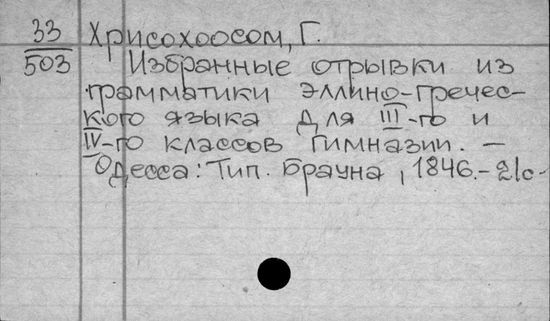 33 Хрисохоосом, Г.
503 Избранные отрывки из
грамматики эллино-гречес-
кого языка для III-го и
IV-го классов гимназии. —
Одесса: Тип. Брауна, 1846.- 21с.